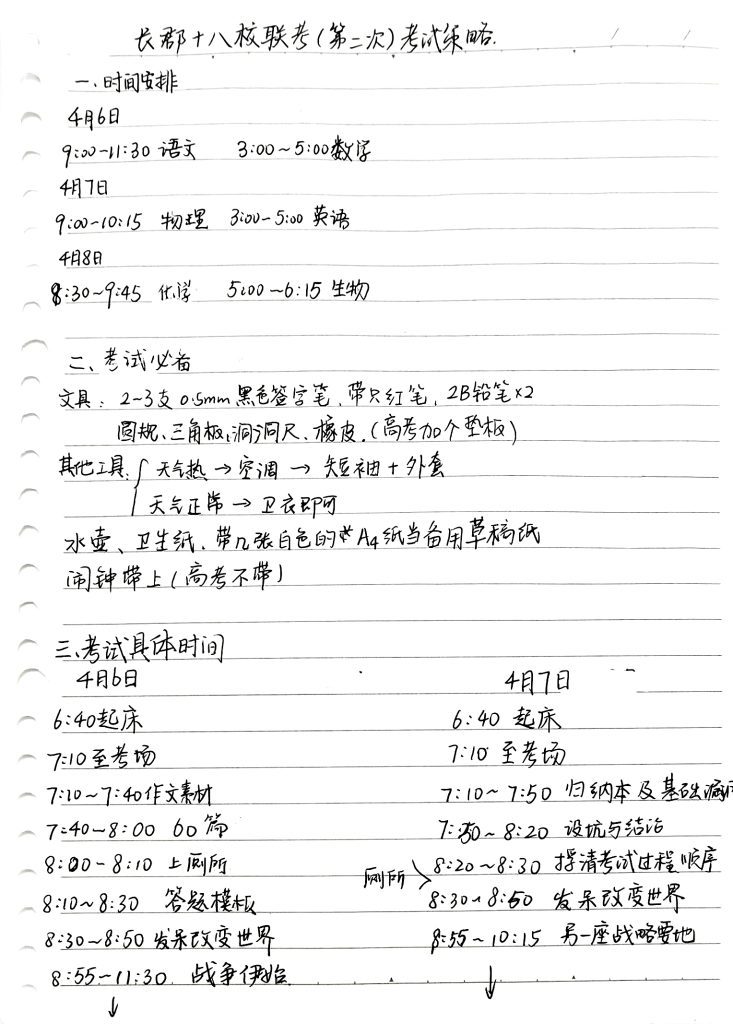 长郡十八校联考(第二次)考试策略.
一、时间安排
4月6日
9:00-11:30 语文 3:00~5:00数学
4月7日
9:00-10:15 物理 3:00-5:00 英语
4月8日
8:30~9:45 化学 5:00~6:15 生物
二、考试必备
文具: 2~3支 0.5mm黑色签字笔、带只红笔, 2B铅笔×2
圆规、三角板、洞洞尺、橡皮.(高考加个垫板)
其他工具: { 天气热 → 空调 → 短袖+外套
天气正常 → 卫衣即可
水壶、卫生纸、带几张白色的 A4纸当备用草稿纸
闹钟带上(高考不带)
三、考试具体时间
4月6日
6:40起床
7:10至考场
7:10~7:40作文素材
7:40~8:00 60篇
8:00-8:10 上厕所
8:10~8:30 答题模板
8:30~8:50 发呆改变世界
8:55~11:30. 战争伊始
↓
4月7日
6:40 起床
7:10 至考场
7:10~7:50 归纳本及基础
7:50~8:20 设坑与结论
厕所 > 8:20~8:30 捋清考试过程顺序
8:30~8:50 发呆改变世界
8:55~10:15 另一座战略要地
↓